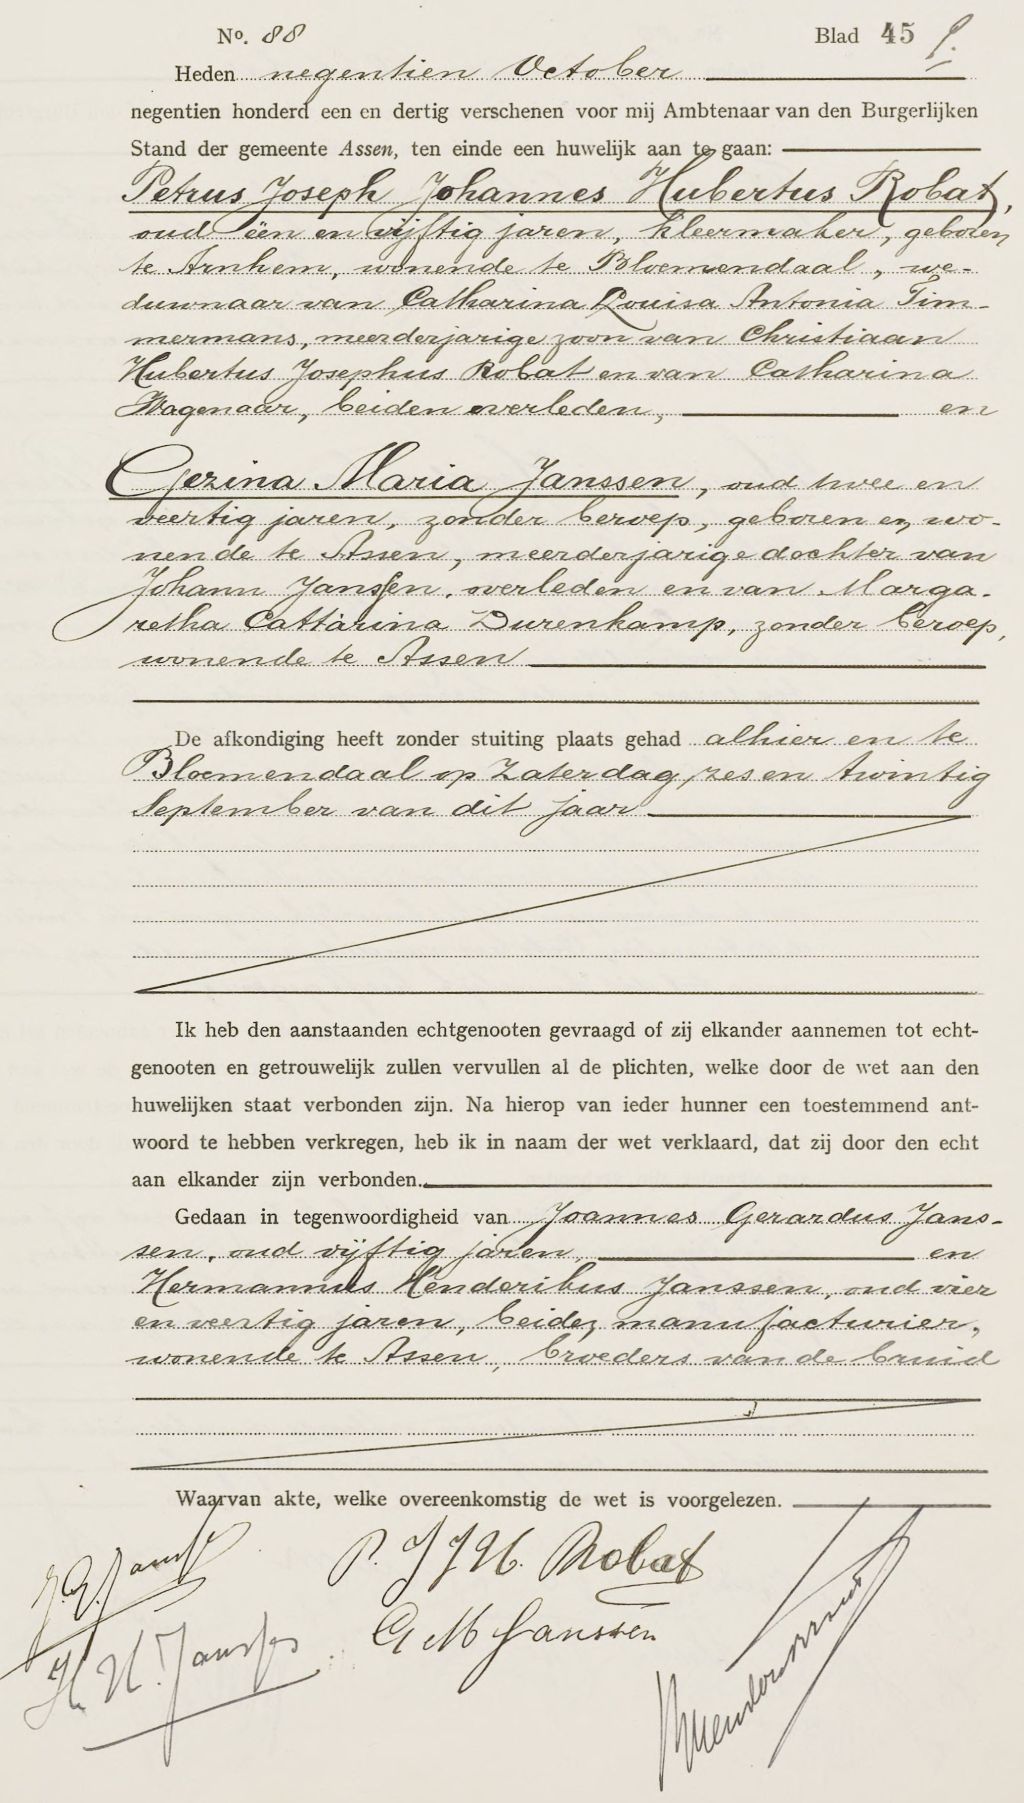 No. 88 Blad 45
Heden negentien October
negentien honderd een en dertig verschenen voor mij Ambtenaar van den Burgerlijken
Stand der gemeente Assen, ten einde een huwelijk aan te gaan:
Petrus Joseph Johannes Hubertus Robat,
oud één en vijftig jaren, kleermaker, geboren
te Arnhem, wonende te Bloemendaal, we-
duwnaar van Catharina Louisa Antonia Tim-
mermans, meerderjarige zoon van Christiaan
Hubertus Josephus Robat en van Catharina
Wagenaar, beiden overleden, en
Gezina Maria Janssen, oud twee en
veertig jaren, zonder beroep, geboren en wo-
nende te Assen, meerderjarige dochter van
Johann Janssen, overleden en van Marga-
retha Cattarina Durenkamp, zonder beroep,
wonende te Assen
De afkondiging heeft zonder stuiting plaats gehad alhier en te
Bloemendaal op Zaterdag, zes en twintig
September van dit jaar
Ik heb den aanstaanden echtgenooten gevraagd of zij elkander aannemen tot echt-
genooten en getrouwelijk zullen vervullen al de plichten, welke door de wet aan den
huwelijken staat verbonden zijn. Na hierop van ieder hunner een toestemmend ant-
woord te hebben verkregen, heb ik in naam der wet verklaard, dat zij door den echt
aan elkander zijn verbonden.
Gedaan in tegenwoordigheid van Joannes Gerardus Jans-
sen, oud vijftig jaren, en
Hermannus Henderikus Janssen, oud vier
en veertig jaren, beiden manufacturier,
wonende te Assen, broeders van de bruid
Waarvan akte, welke overeenkomstig de wet is voorgelezen.
J. G. Janssen P. J J H. Robat
H. H. Janssen G M Janssen